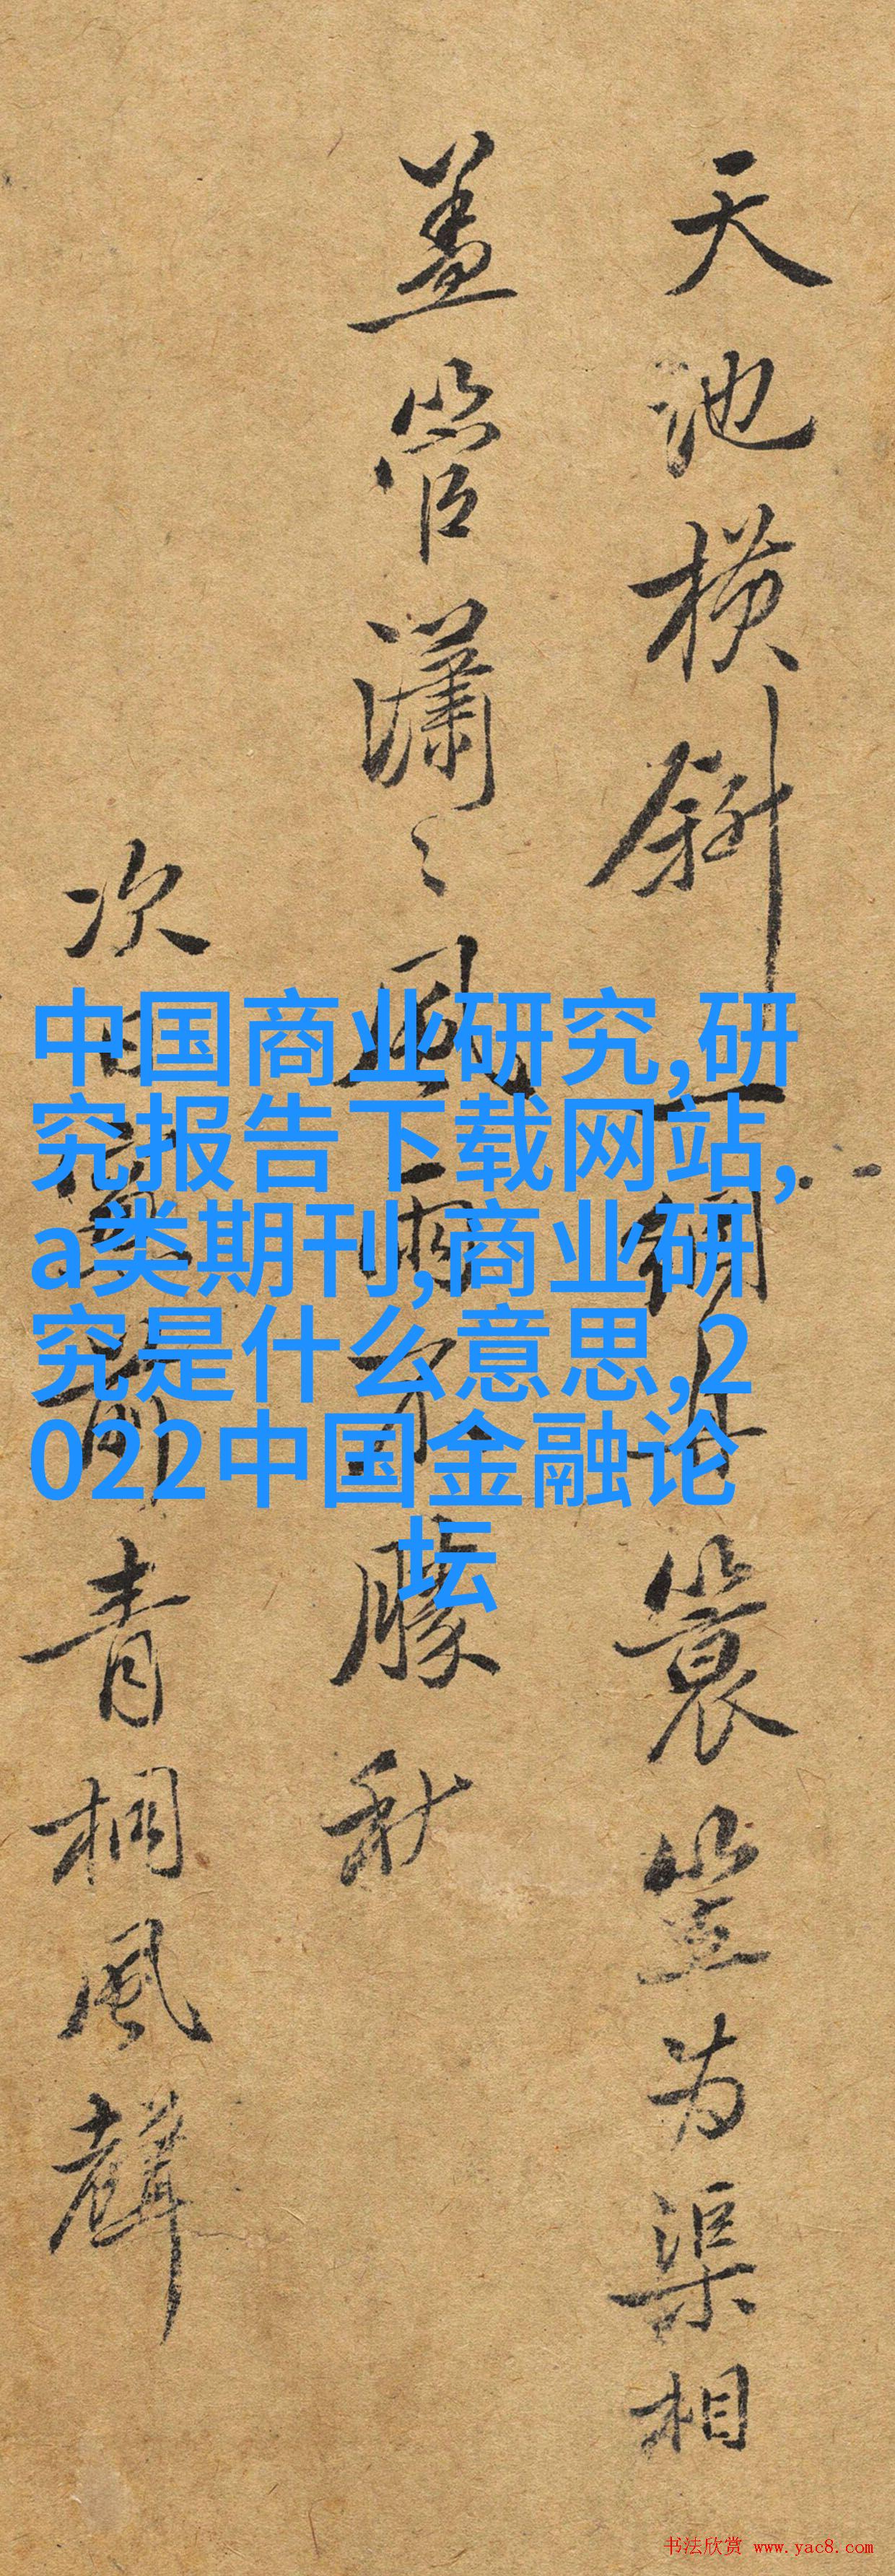 中国商业研究,研
究报告下载网站,
a类期刊,商业研
究是什么意思,2
022中国金融论
坛
天池横斜一簑笠为渠相
盖管潇〻風雨不勝秋
次日青桐風聲
书法欣赏 www.yac8.com